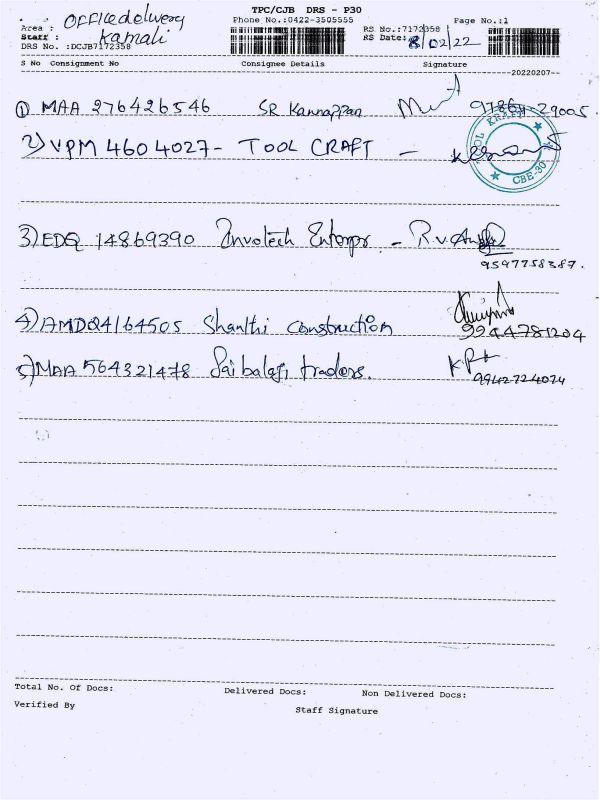 TPC/CJB DRS - P30
Area : Officedelivery Phone No.:0422-3505555 Page No.:1
Staff : Kamali RS No.:7172358
DRS No. :DCJB7172358 RS Date: 8/02/22
S No Consignment No Consignee Details Signature
20220207
① MAA 276426546 SR Kannappan 29005
2) VPM 4604027- TOOL CRAFT -
TOOL KRAFT CBE-30
3) EDQ 14869390 Invotech Enterps. - R.V.
9597758387.
4) AMD Shanthi Construction
9944781204
5) MAA 564321478 Sai balaji traders. KPK
9942724074
Total No. Of Docs: Delivered Docs: Non Delivered Docs:
Verified By Staff Signature